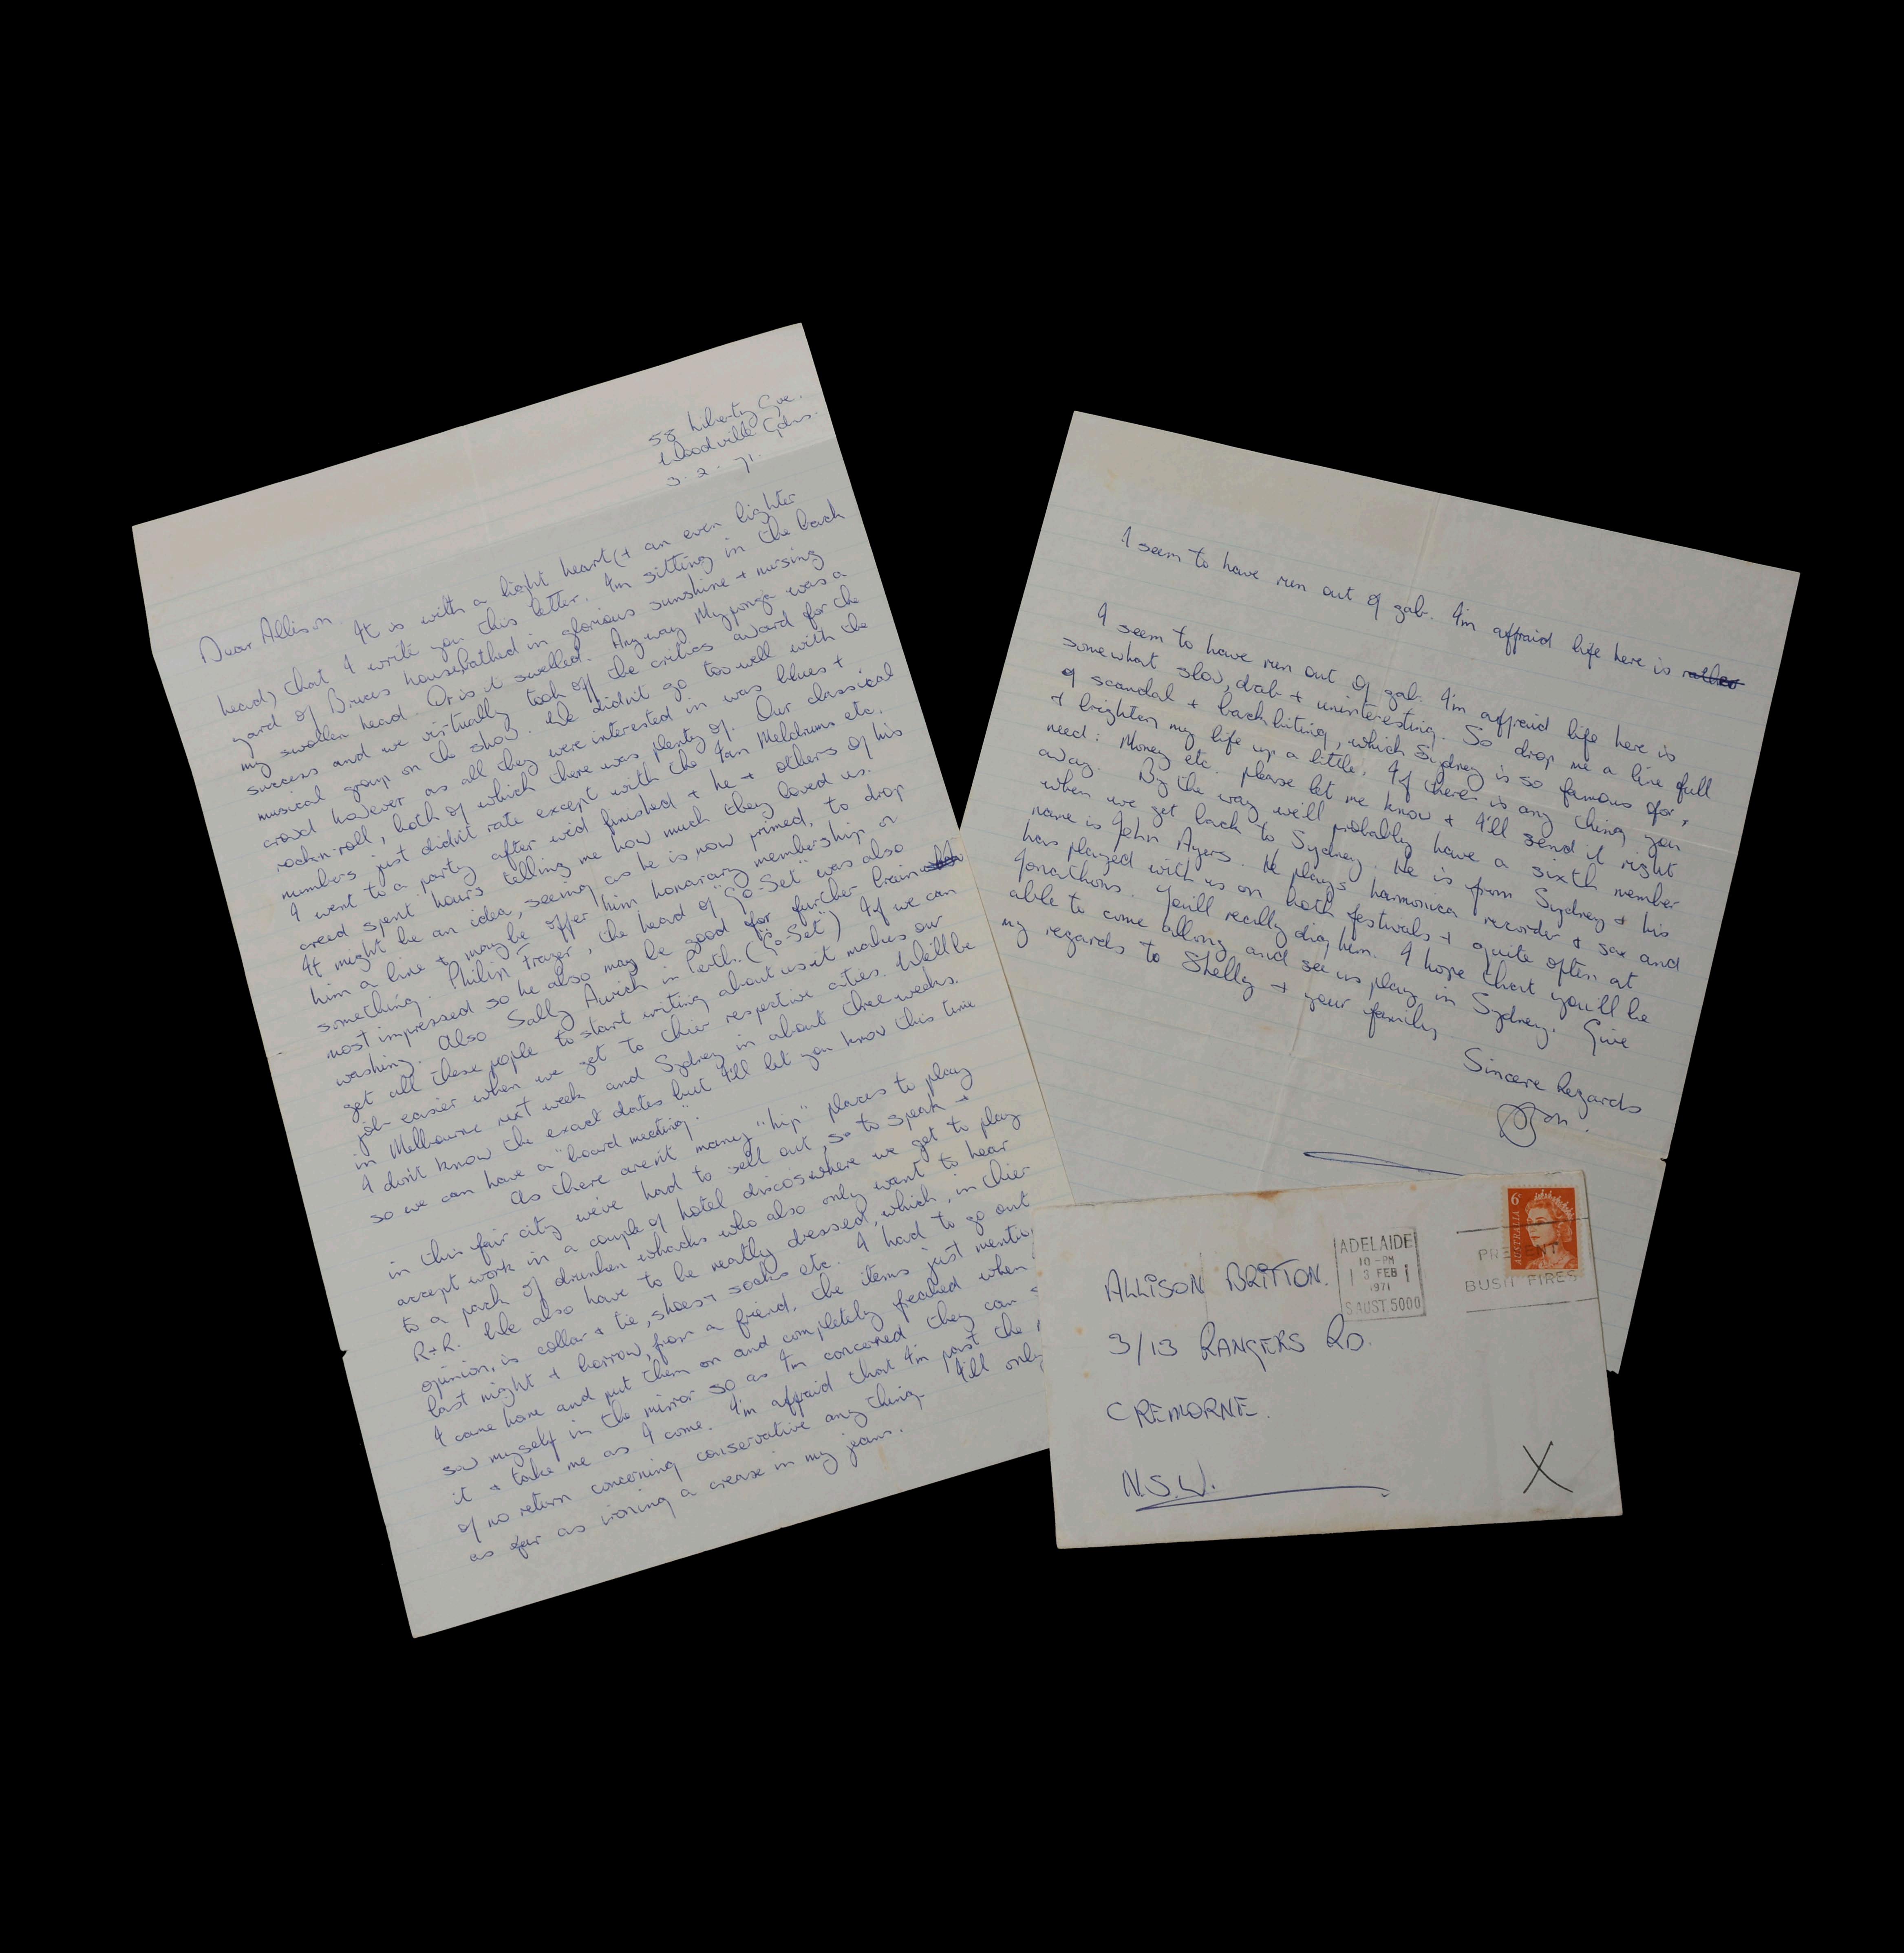 58 Liberty Gve.
Woodville Gdns.
3. 2. 71.
Dear Allison.
It is with a light heart (+ an even lighter
head) that I write you this letter. I'm sitting in the back
yard of Bruces house, bathed in glorious sunshine + nursing
my swollen head. Or is it swelled. Anyway Myponga was a
success and we virtually took off the critics award for the
musical group on the show. We didn't go too well with the
crowd however as all they were interested in was blues +
rock-n-roll, both of which there was plenty of. Our classical
numbers just didn't rate except with the Ian Meldrums etc.
I went to a party after we'd finished + he + others of his
creed spent hours telling me how much they loved us.
It might be an idea, seeing as he is now primed, to drop
him a line + maybe offer him honarary membership or
something. Philip Frazer, the head of "Go-Set" was also
most impressed so he also may be good for further brain
washing. Also Sally in Perth. ("Go-Set") If we can
get all these people to start writing about us it makes our
job easier when we get to thier respective cities. We'll be
in Melbourne next week and Sydney in about three weeks.
I don't know the exact dates but I'll let you know this time
so we can have a "board meeting".
As there aren't many "hip" places to play
in this fair city we've had to sell out, so to speak +
accept work in a couple of hotel discos where we get to play
to a pack of drunken whacks who also only want to hear
R+R. We also have to be neatly dressed, which, in thier
opinion, is collar + tie, shoes + socks etc. I had to go out
last night + borrow, from a friend, the items just
I came home and put them on and completely freaked when
saw myself in the mirror so as I'm concerned they can
it + take me as I come. I'm affraid that I'm past the
of no return concerning conservative anything. I'll only
as far as ironing a crease in my jeans.
I seem to have run out of gab. I'm affraid life here is rather
I seem to have run out of gab. I'm affraid life here is
somewhat slow, drab + uninteresting. So drop me a line full
of scandal + backbiting, which Sydney is so famous for,
+ brighten my life up a little. If there is any thing you
need: Money etc. please let me know + I'll send it right
away. By the way we'll probably have a sixth member
when we get back to Sydney. He is from Sydney + his
name is John Ayers. He plays harmonica recorder + sax and
has played with us on both festivals + quite often at
Jonathons. You'll really dig him. I hope that you'll be
able to come allong and see us play in Sydney. Give
my regards to Shelly + your family
Sincere Regards
Bon.
AUSTRALIA 6c
ADELAIDE
10-PM
3 FEB
1971
S AUST. 5000
PREVENT
BUSH FIRES
ALLISON BRITTON.
3/13 RANGERS RD.
CREMORNE.
N.S.W.
X